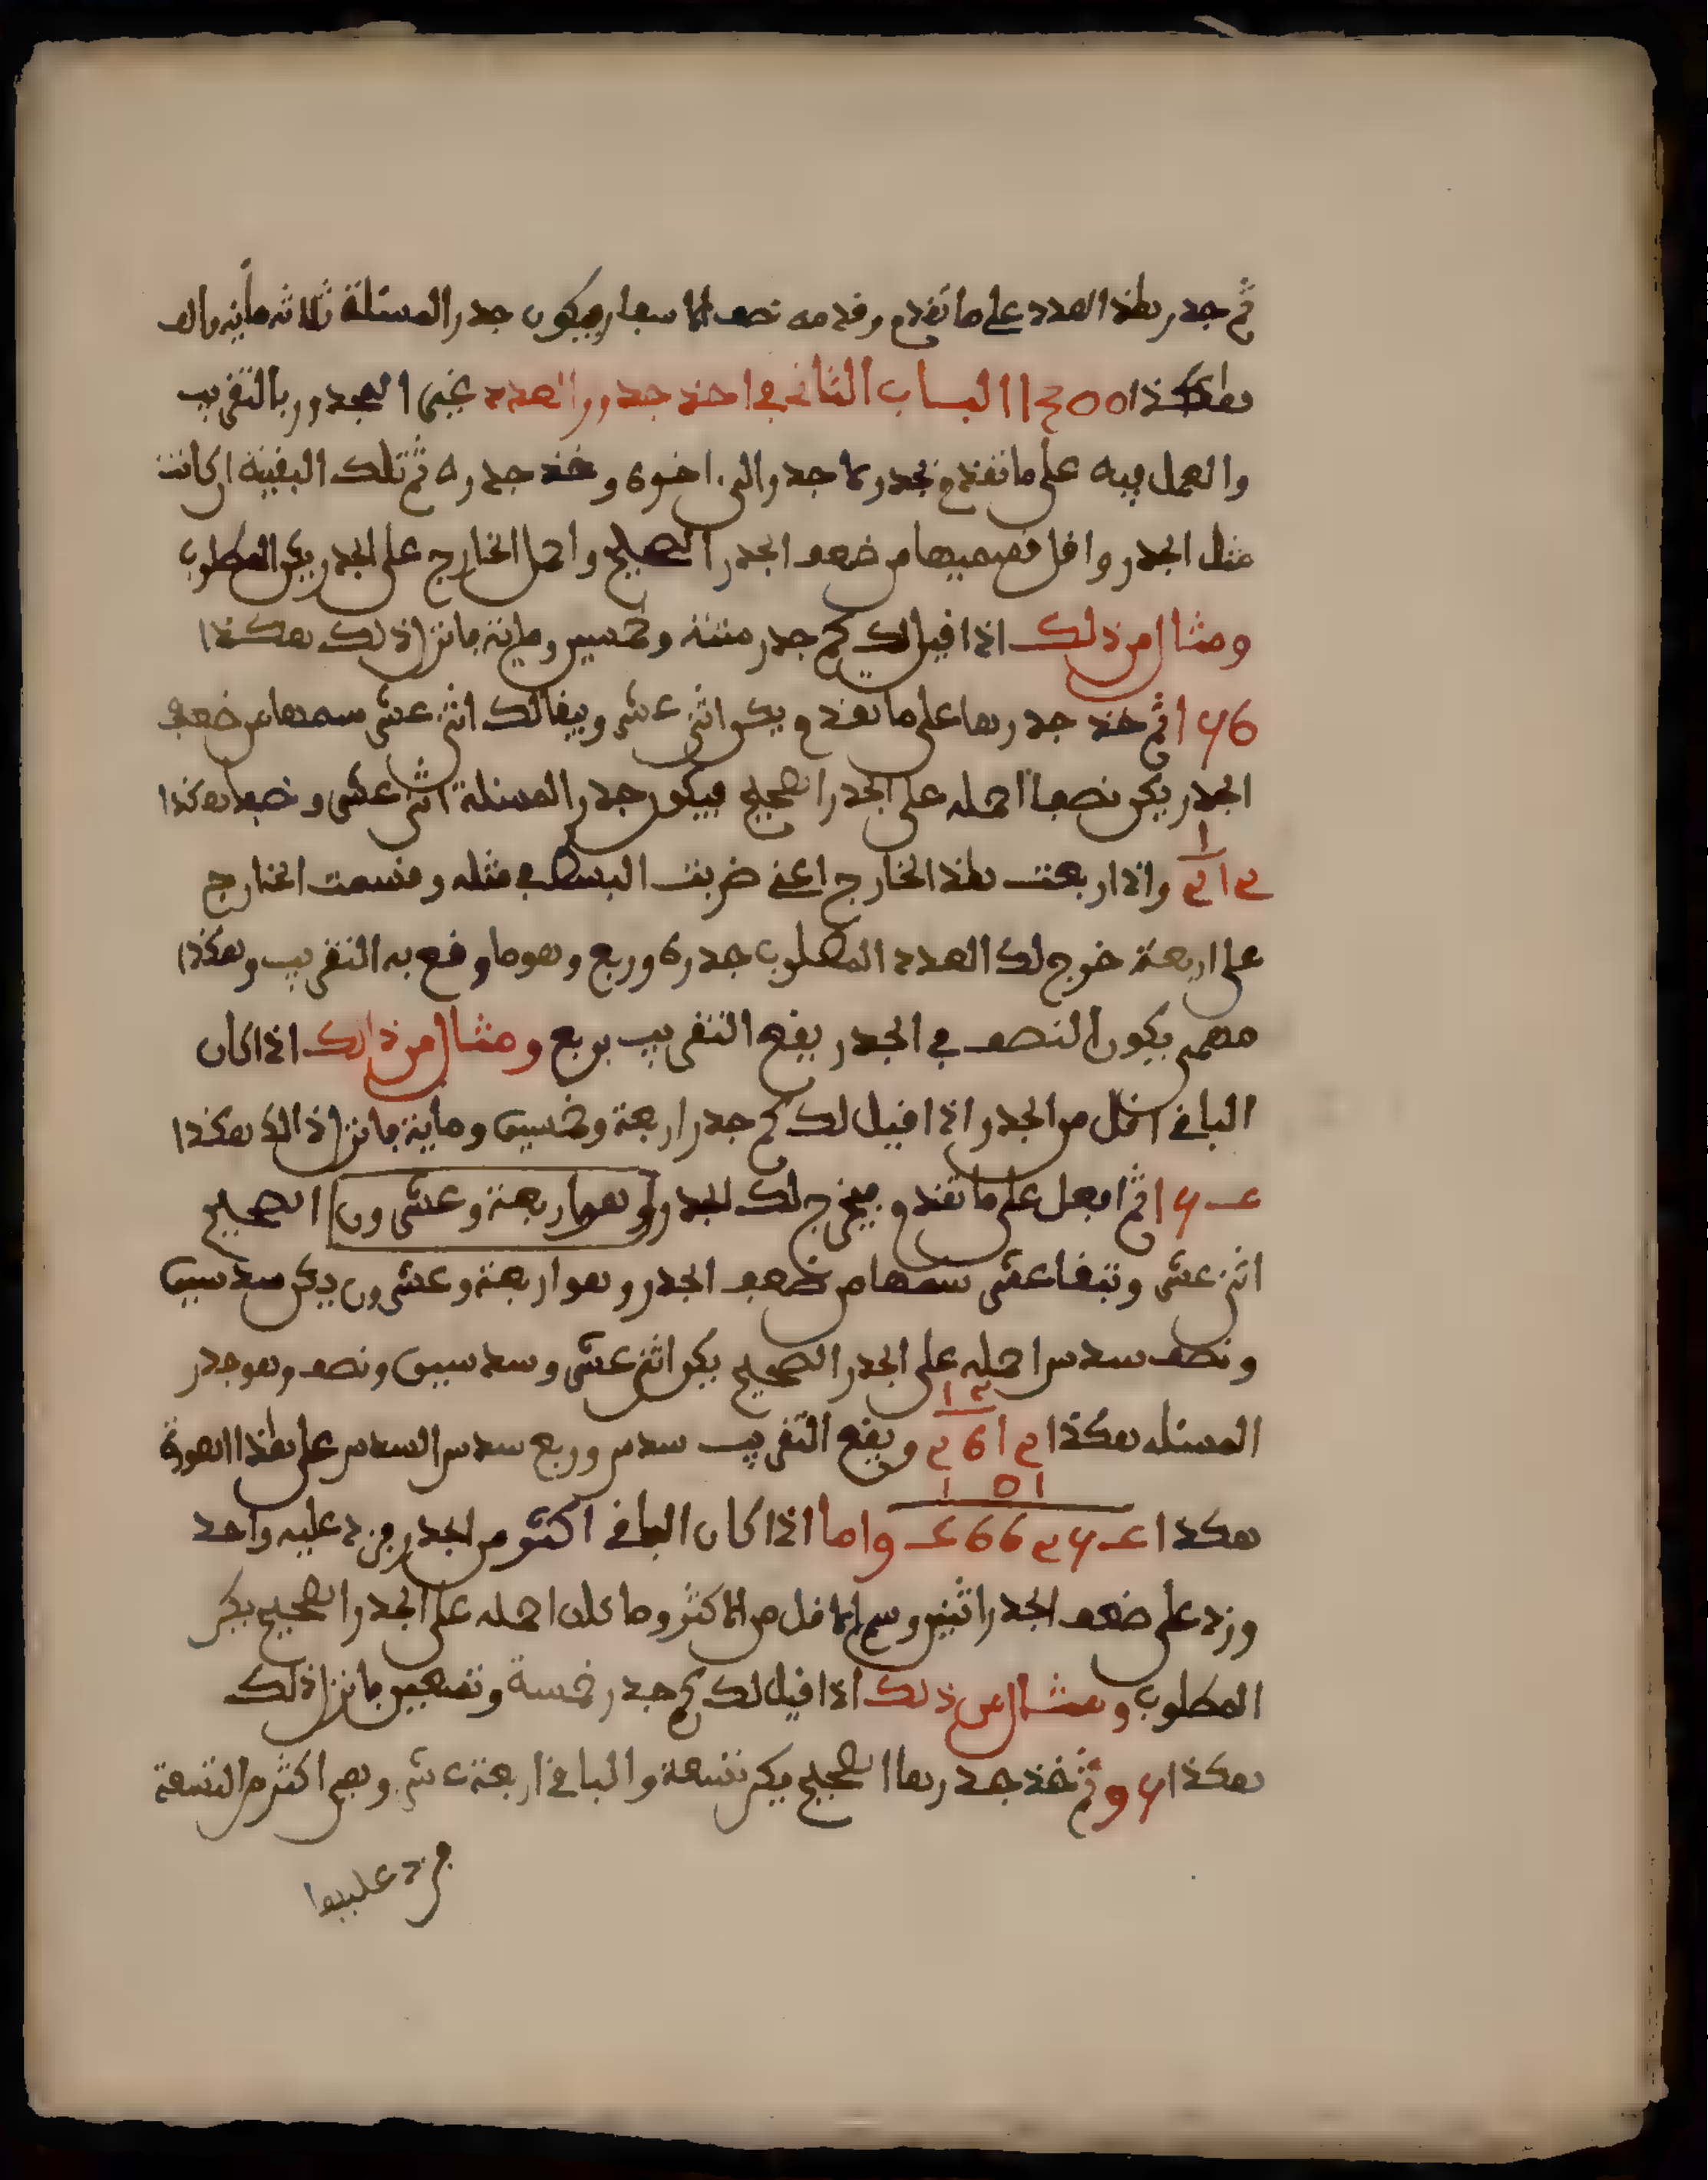 ثم جدر هذا العدد على ما تقدم وقدمه نصف الاسفار فيكون جدر المسئلة ثلاثه مائه والف
هكذا 1300 الباب الثاني في اخذ جدور العدد غير المجدور بالتقريب
والعمل فيه على ما تقدم تجدر لا جدر الى اخره وخذ جدره ثم تلك البقية ان كانت
مثل الجدر واقل فسميها من ضعف الجدر الصحيح واحمل الخارج على الجدر يكن المطلوب
ومثال من ذلك اذا قيل لك كم جدر ستة وخمسين وماية فانزل ذلك هكذا
156 ثم خذ جدرها على ما تقدم يكن اثنى عشر ويبقا لك اثنى عشر سمها من ضعف
الجدر يكن نصفا احمله على الجدر الصحيح فيكون جدر المسئلة اثنى عشر ونصفا هكذا
1
2 12 واذا ربعت هذا الخارج اعني ضربت البسط في مثله وقسمت الخارج
على اربعة خرج لك العدد المطلوب جدره وربع وهو ما وقع به التقريب وهكذا
مهمى يكون النصف في الجدر يقع التقريب بربع ومثال من ذلك اذا كان
الباقي اقل من الجدر اذا قيل لك كم جدر اربعة وخمسين وماية فانزل ذالك هكذا
154 ثم افعل على ما تقدم فيخرج لك الجدر وهو اربعة وعشرون الصحيح
اثنى عشر وتبقا عشر سمها من ضعف الجدر وهو اربعة وعشرون يكن سدسين
ونصف سدس احمله على الجدر الصحيح يكن اثنى عشر وسدسين ونصف وهو جدر
1 2
المسئله هكذا 2 6 12 ويقع التقريب سدس وربع سدس السدس على هذا الصورة
1 0 1
هكذا 4 6 6 154 واما اذا كان الباقي اكثر من الجدر فزد عليه واحد
وزد على ضعف الجدر اثنين وسم الاقل من الاكثر وما كان احمله على الجدر الصحيح يكن
المطلوب ومثال من ذلك اذا قيل لك كم جدر خمسة وتسعين فانزل ذلك
هكذا 95 ثم خذ جدرها الصحيح يكن تسعة والباقي اربعة عشر وهي اكثر من التسعة
فزد عليها